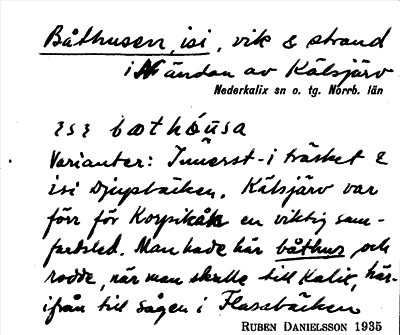 Båthusen, isi, vik & strand
i N ändan av Kälsjärv
Nederkalix sn o. tg. Norrb. län
ɪsɪ båthóusa
Varianter: Innerst-i träsket &
isi Djupbäcken. Kälsjärv var
förr för Korpikåk en viktig sam-
färdsled. Man hade här båthus och
rodde, när man skulle till Kalix, här-
ifrån till sågen i Flasabäcken
RUBEN DANIELSSON 1935